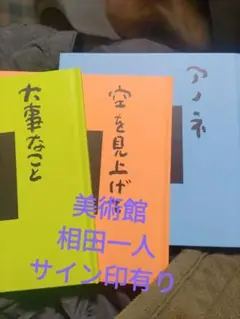 大事なこと
空を見上げて
アノネ
美術館
相田一人
サイン印有り